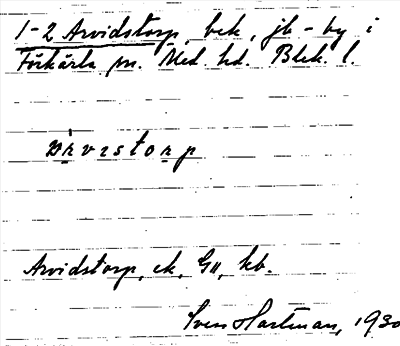 1-2 Arvidstorp, bek, jb-by i
Förkärla sn. Med. hd. Blek. l.
ɑ̀ʀvɪstoʀp
Arvidstorp, ek, GII, kb.
Sven Hartman, 1930